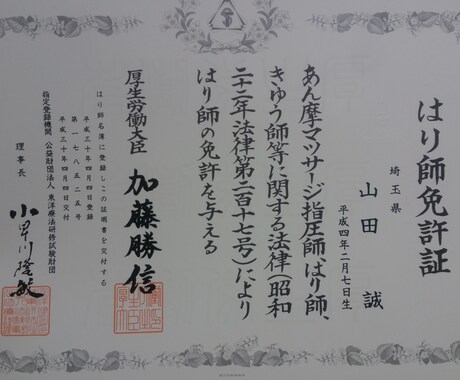 はり師免許証
埼玉県
山田 誠
平成四年二月七日生
あん摩マツサージ指圧師、はり師、
きゆう師等に関する法律(昭和
二十二年法律第二百十七号)により
はり師の免許を与える
厚生労働大臣 加藤勝信
はり師名簿に登録しこの証明書を交付する
平成三十年四月四日登録
第一七八五二五号
平成三十年四月四日交付
指定登録機関 公益財団法人 東洋療法研修試験財団
理事長 小早川隆敏